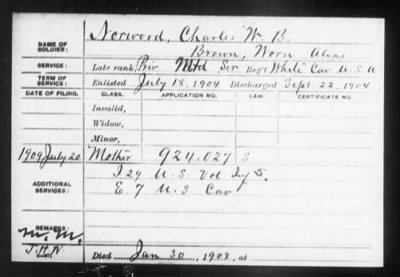 NAME OF SOLDIER: Norwood, Charles W. B.
Brown, Worn Alias
SERVICE: Late rank, Priv Mtd Ser Reg't White Cav U S A
TERM OF SERVICE: Enlisted July 18, 1904 Discharged Sept 22, 1904
DATE OF FILING. CLASS. APPLICATION NO. LAW. CERTIFICATE NO.
Invalid,
Widow,
Minor,
1909 July 20 Mother 924,027 S
ADDITIONAL SERVICES: I 29 U.S. Vol Inf.
E 7 U.S Cav
REMARKS:
M. M.
Died Jan 30, 1908, at